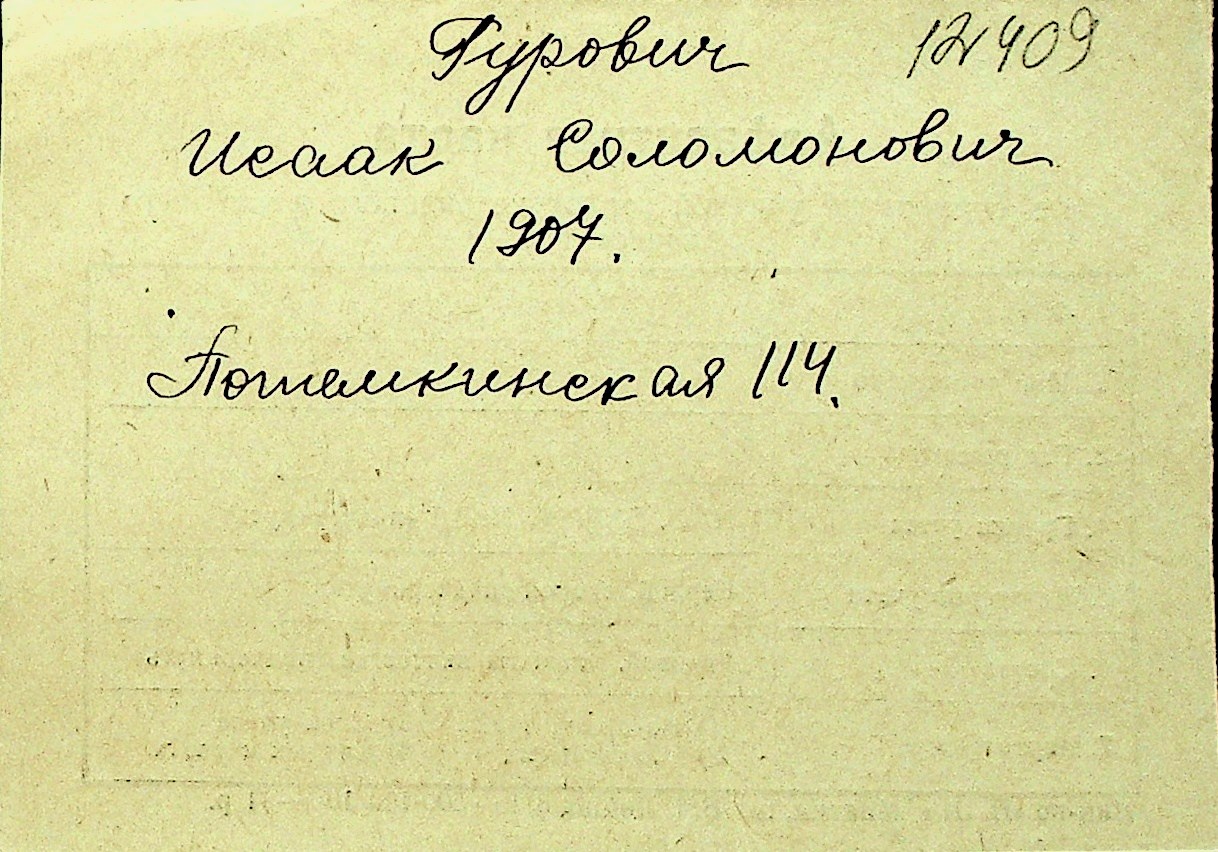 Гурович 12409
Исаак Соломонович
1907.
Потемкинская 114.